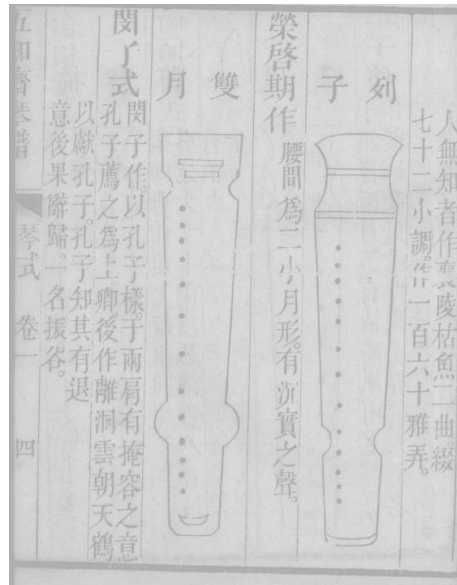 人無知者作襄陵枯魚二曲綴
七十二小調。作一百六十雅弄。
列子
榮啓期作
腰間爲二小月形。有沉實之聲。
雙月
閔子式
閔子作。以孔子樣。于兩肩有掩容之意
孔子薦之爲上卿。後作離洞雲朝天鶴
以獻孔子。孔子知其有退
意後果辭歸。一名振谷。
五知齋琴譜 琴式 卷一 四